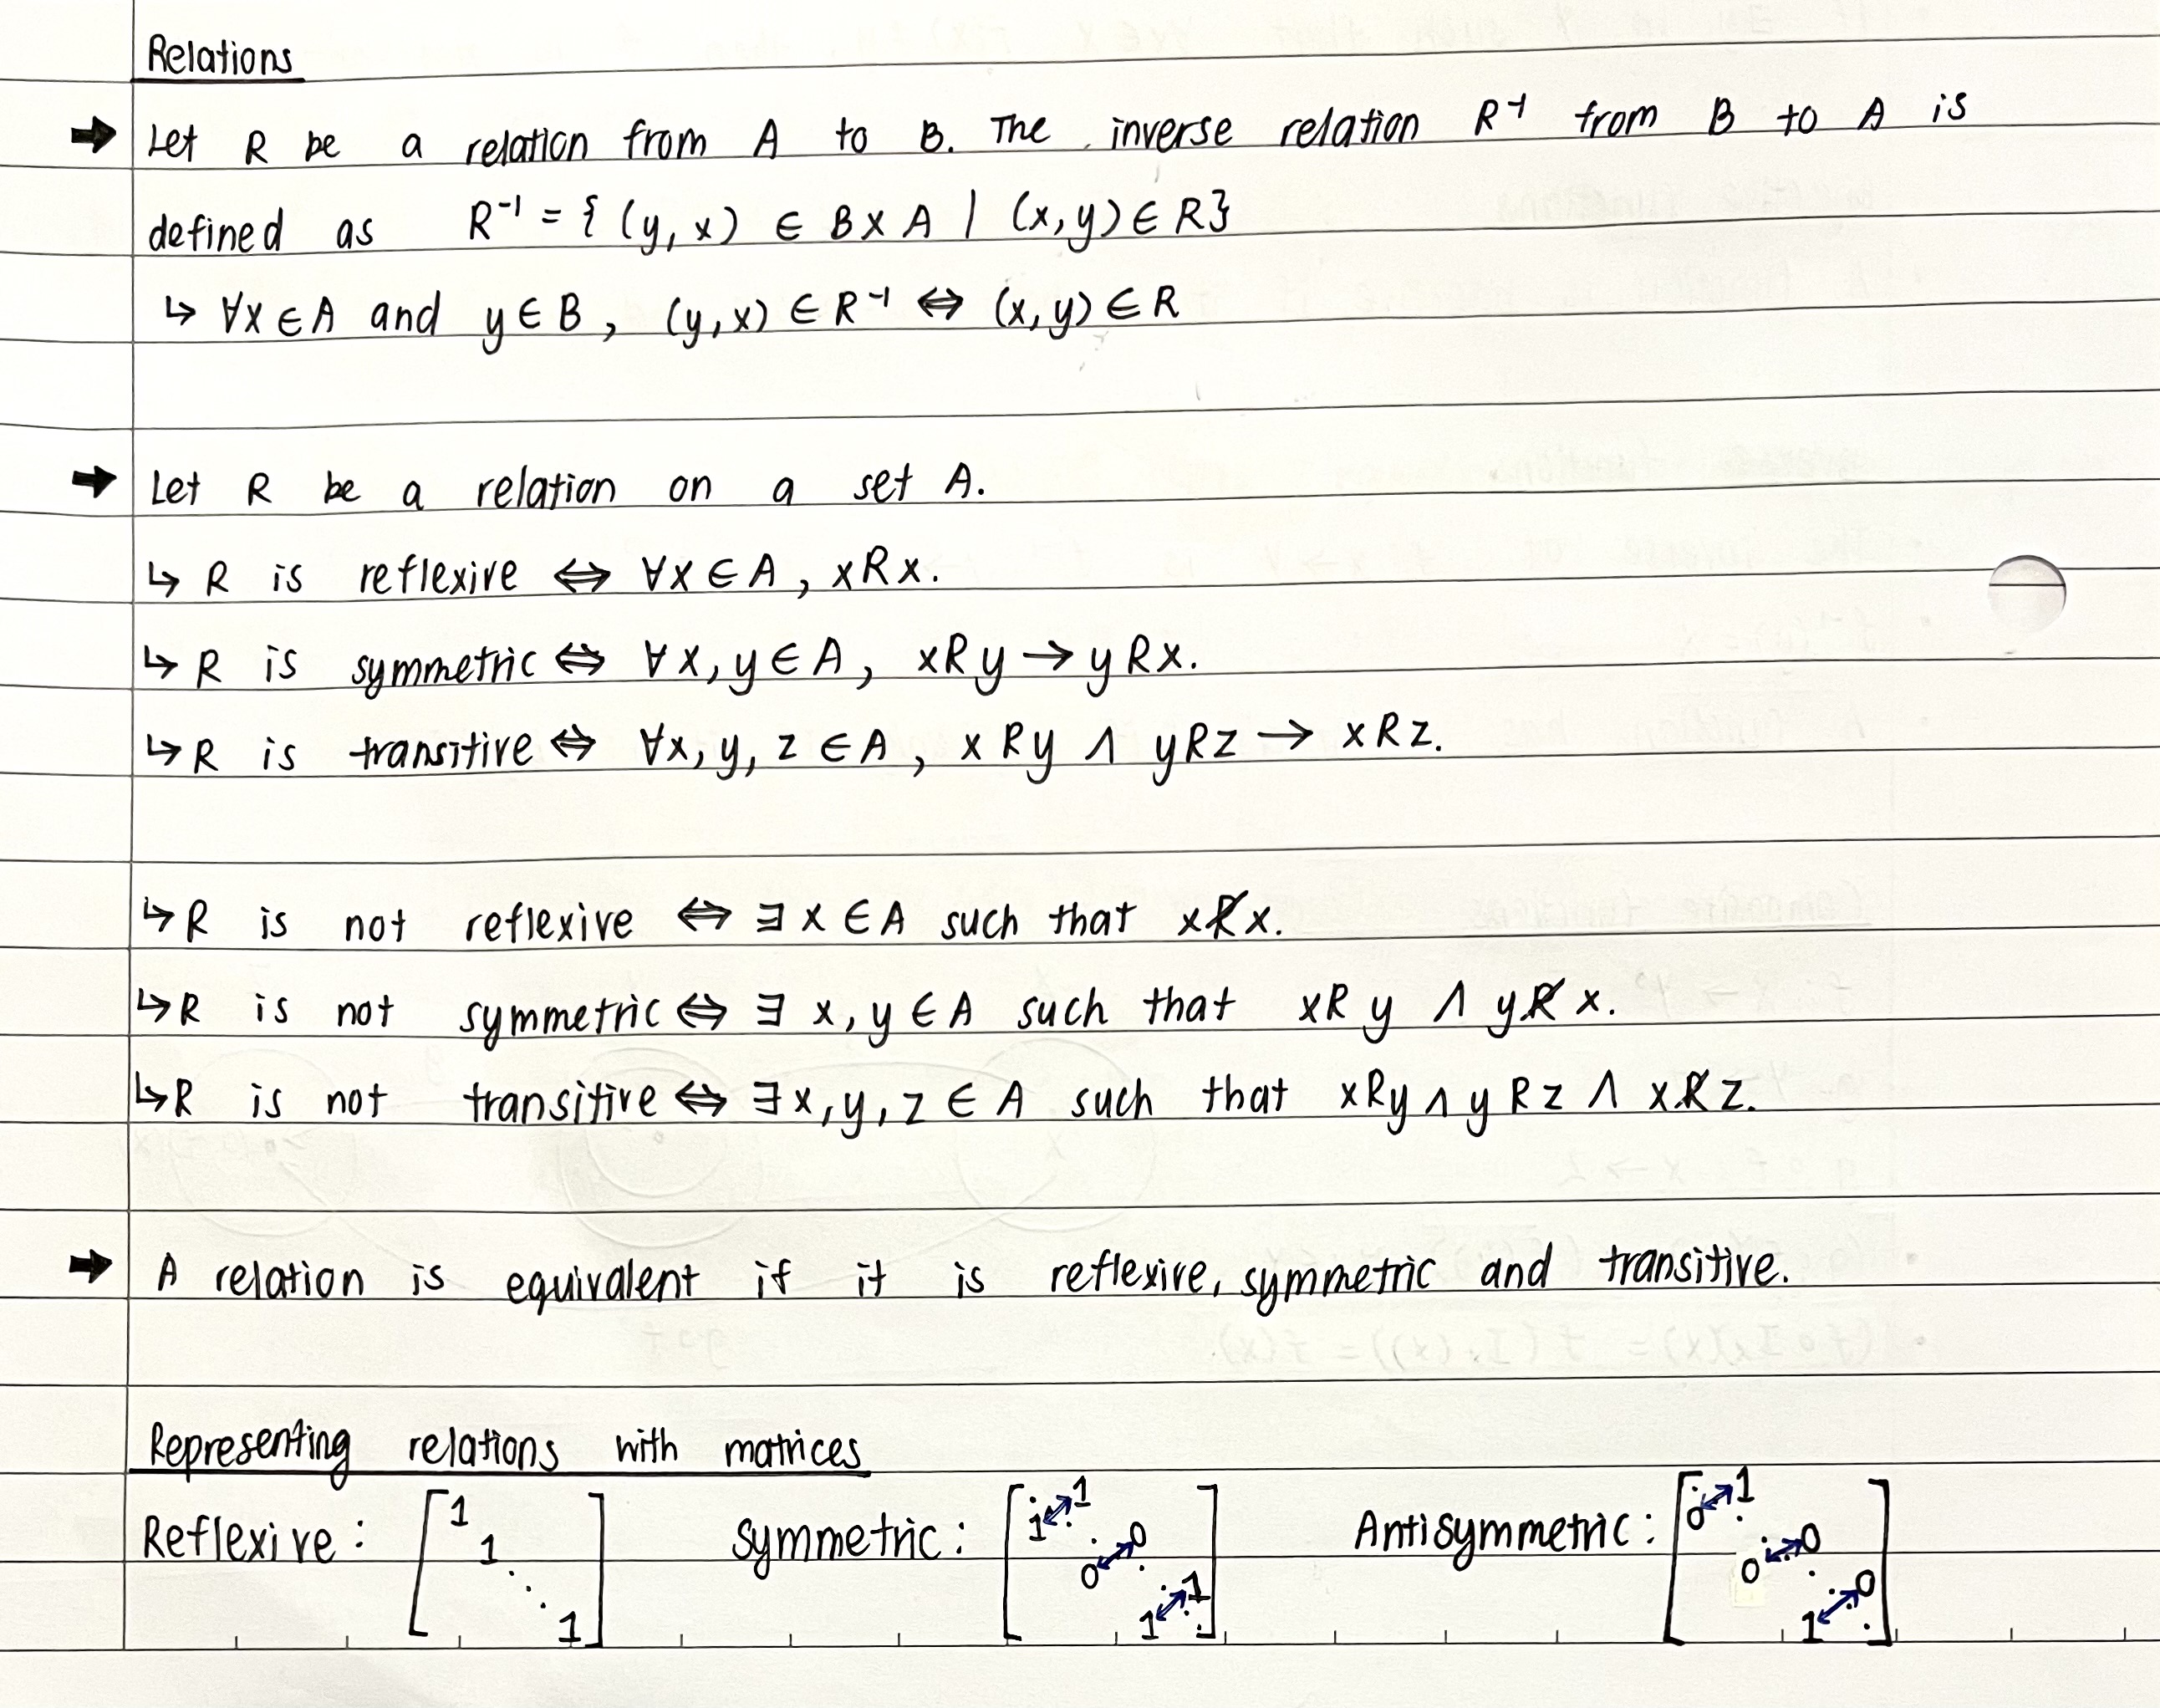 Relations
→ Let R be a relation from A to B. The inverse relation R⁻¹ from B to A is
defined as R⁻¹ = { (y, x) ∈ B × A | (x, y) ∈ R}
↳ ∀x ∈ A and y ∈ B, (y, x) ∈ R⁻¹ ⇔ (x, y) ∈ R
→ Let R be a relation on a set A.
↳ R is reflexive ⇔ ∀x ∈ A, xRx.
↳ R is symmetric ⇔ ∀x, y ∈ A, xRy → yRx.
↳ R is transitive ⇔ ∀x, y, z ∈ A, xRy ∧ yRz → xRz.
↳ R is not reflexive ⇔ ∃ x ∈ A such that xR̸x.
↳ R is not symmetric ⇔ ∃ x, y ∈ A such that xRy ∧ yR̸x.
↳ R is not transitive ⇔ ∃ x, y, z ∈ A such that xRy ∧ yRz ∧ xR̸z.
→ A relation is equivalent if it is reflexive, symmetric and transitive.
Representing relations with matrices
Reflexive: [1 1 ⋱ 1] symmetric: [1 ↔ 1 0 ↔ 0 1 ↔ 1] Antisymmetric: [0 ↔ 1 0 ↔ 0 1 ↔ 0]